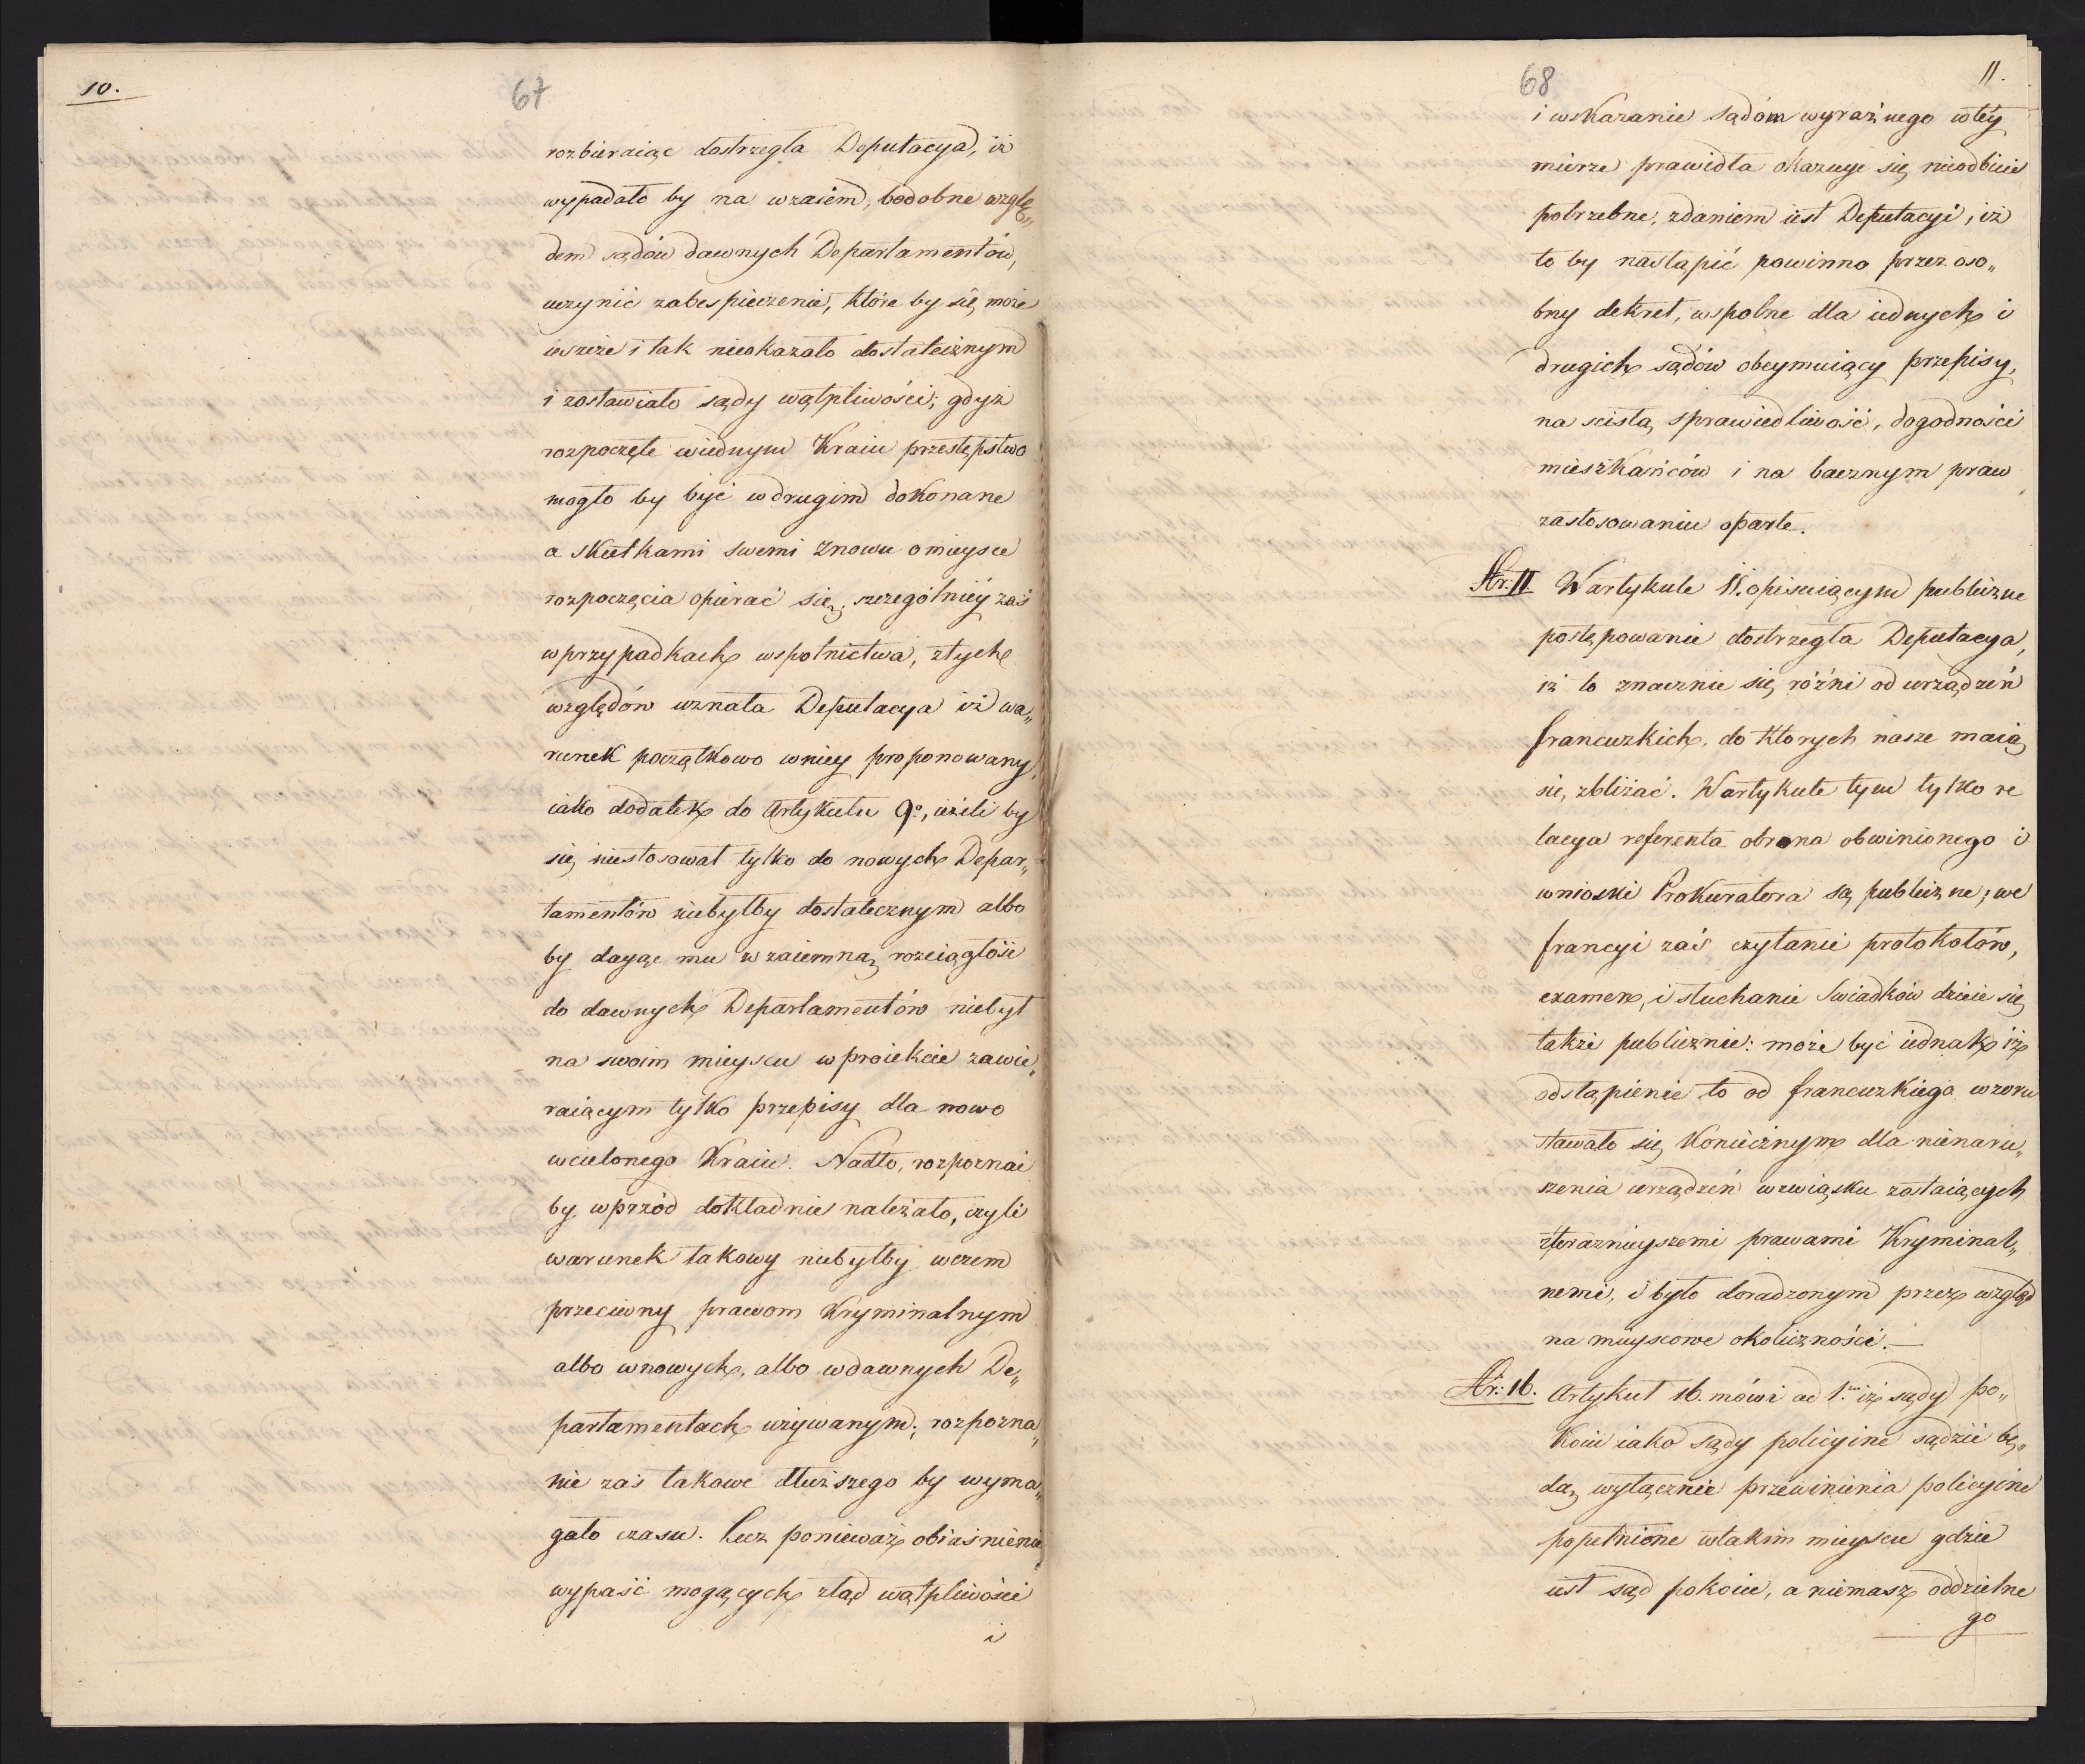 10.
67
rozbieraiąc dostrzegła Deputacya, iż
wypadało by na wzaiem, podobne wzglę„
dem sądów dawnych Departamentów,
uczynić zabespieczenie, które by się może
ieszcze i tak nieokazało dostatecznym
i zostawiało sądy wątpliwości; gdyż
rozpoczęte wiednym Kraiu przestępstwo
mogło by być w drugim dokonane
a skutkami swemi znowu o mieysce
rozpoczęcia opierać się, szczególniéy zaś
w przypadkach wspolnictwa, ztych
względów uznała Deputacya iż wa„
runek początkowo wniey proponowany,
iako dodatek do Artykułu 9º, ieżeli by
się niestosował tylko do nowych Depar„
tamentów niebyłby dostatecznym albo
by daiąc mu wzaiemną rozciągłość
do dawnych Departamentów niebył
na swoim mieyscu w proiekcie zawie„
raiącym tylko przepisy dla nowo
wcielonego Kraiu. Nadto, rozpoznać
by wprzód dokładnie należało, czyli
warunek takowy niebyłby wczem
przeciwny prawom Kryminalnym
albo wnowych, albo wdawnych De„
partamentach używanym; rozpozna„
nie zaś takowe dłuższego by wyma„
gało czasu. Lecz ponieważ obiaśnienie
wypaść mogących ztąd wątpliwości
i
68
11.
i wskazanie sądóm wyraźnego wtéy
mierze prawidła okazuje się nieodbicie
potrzebne, zdaniem iest Deputacyi, iż
to by nastąpić powinno przez oso„
bny dekret, wspolne dla iednych i
drugich sądów obeymuiący przepisy,
na scisłą sprawiedliwość, dogodności
mieszkańców i na bacznym praw
zastosowaniu oparte.
Ar: 11 Wartykule 11. opisuiącym publiczne
postępowanie dostrzegła Deputacya,
iż to znacznie się różni od urządzeń
francuzkich, do ktorych nasze maią
się zbliżać. Wartykule tym tylko re
lacya referenta obrona obwinionego i
wnioski Prokuratora są publiczne; we
francyi zaś czytanie protokołów,
examen, i słuchanie swiadków dzieie się
także publicznie: może być iednak iż
odstąpienie to od francuzkiego wzoru
stawało się Koniecznym dla nienaru„
szenia urządzeń wzwiąsku zostaiących
zterazniejszemi prawami Kryminal„
nemi, i było doradzonym przez wzgląd
na mieyscowe okoliczności.—
Ar: 16. Artykuł 16. mówi ad 1.ᵐ iż sądy po„
koiu iako sądy policyine sądzić bę„
dą wyłącznie przewinienia policyine
popełnione wtakim mieyscu gdzie
iest sąd pokoiu, a niemasz oddzielne
go